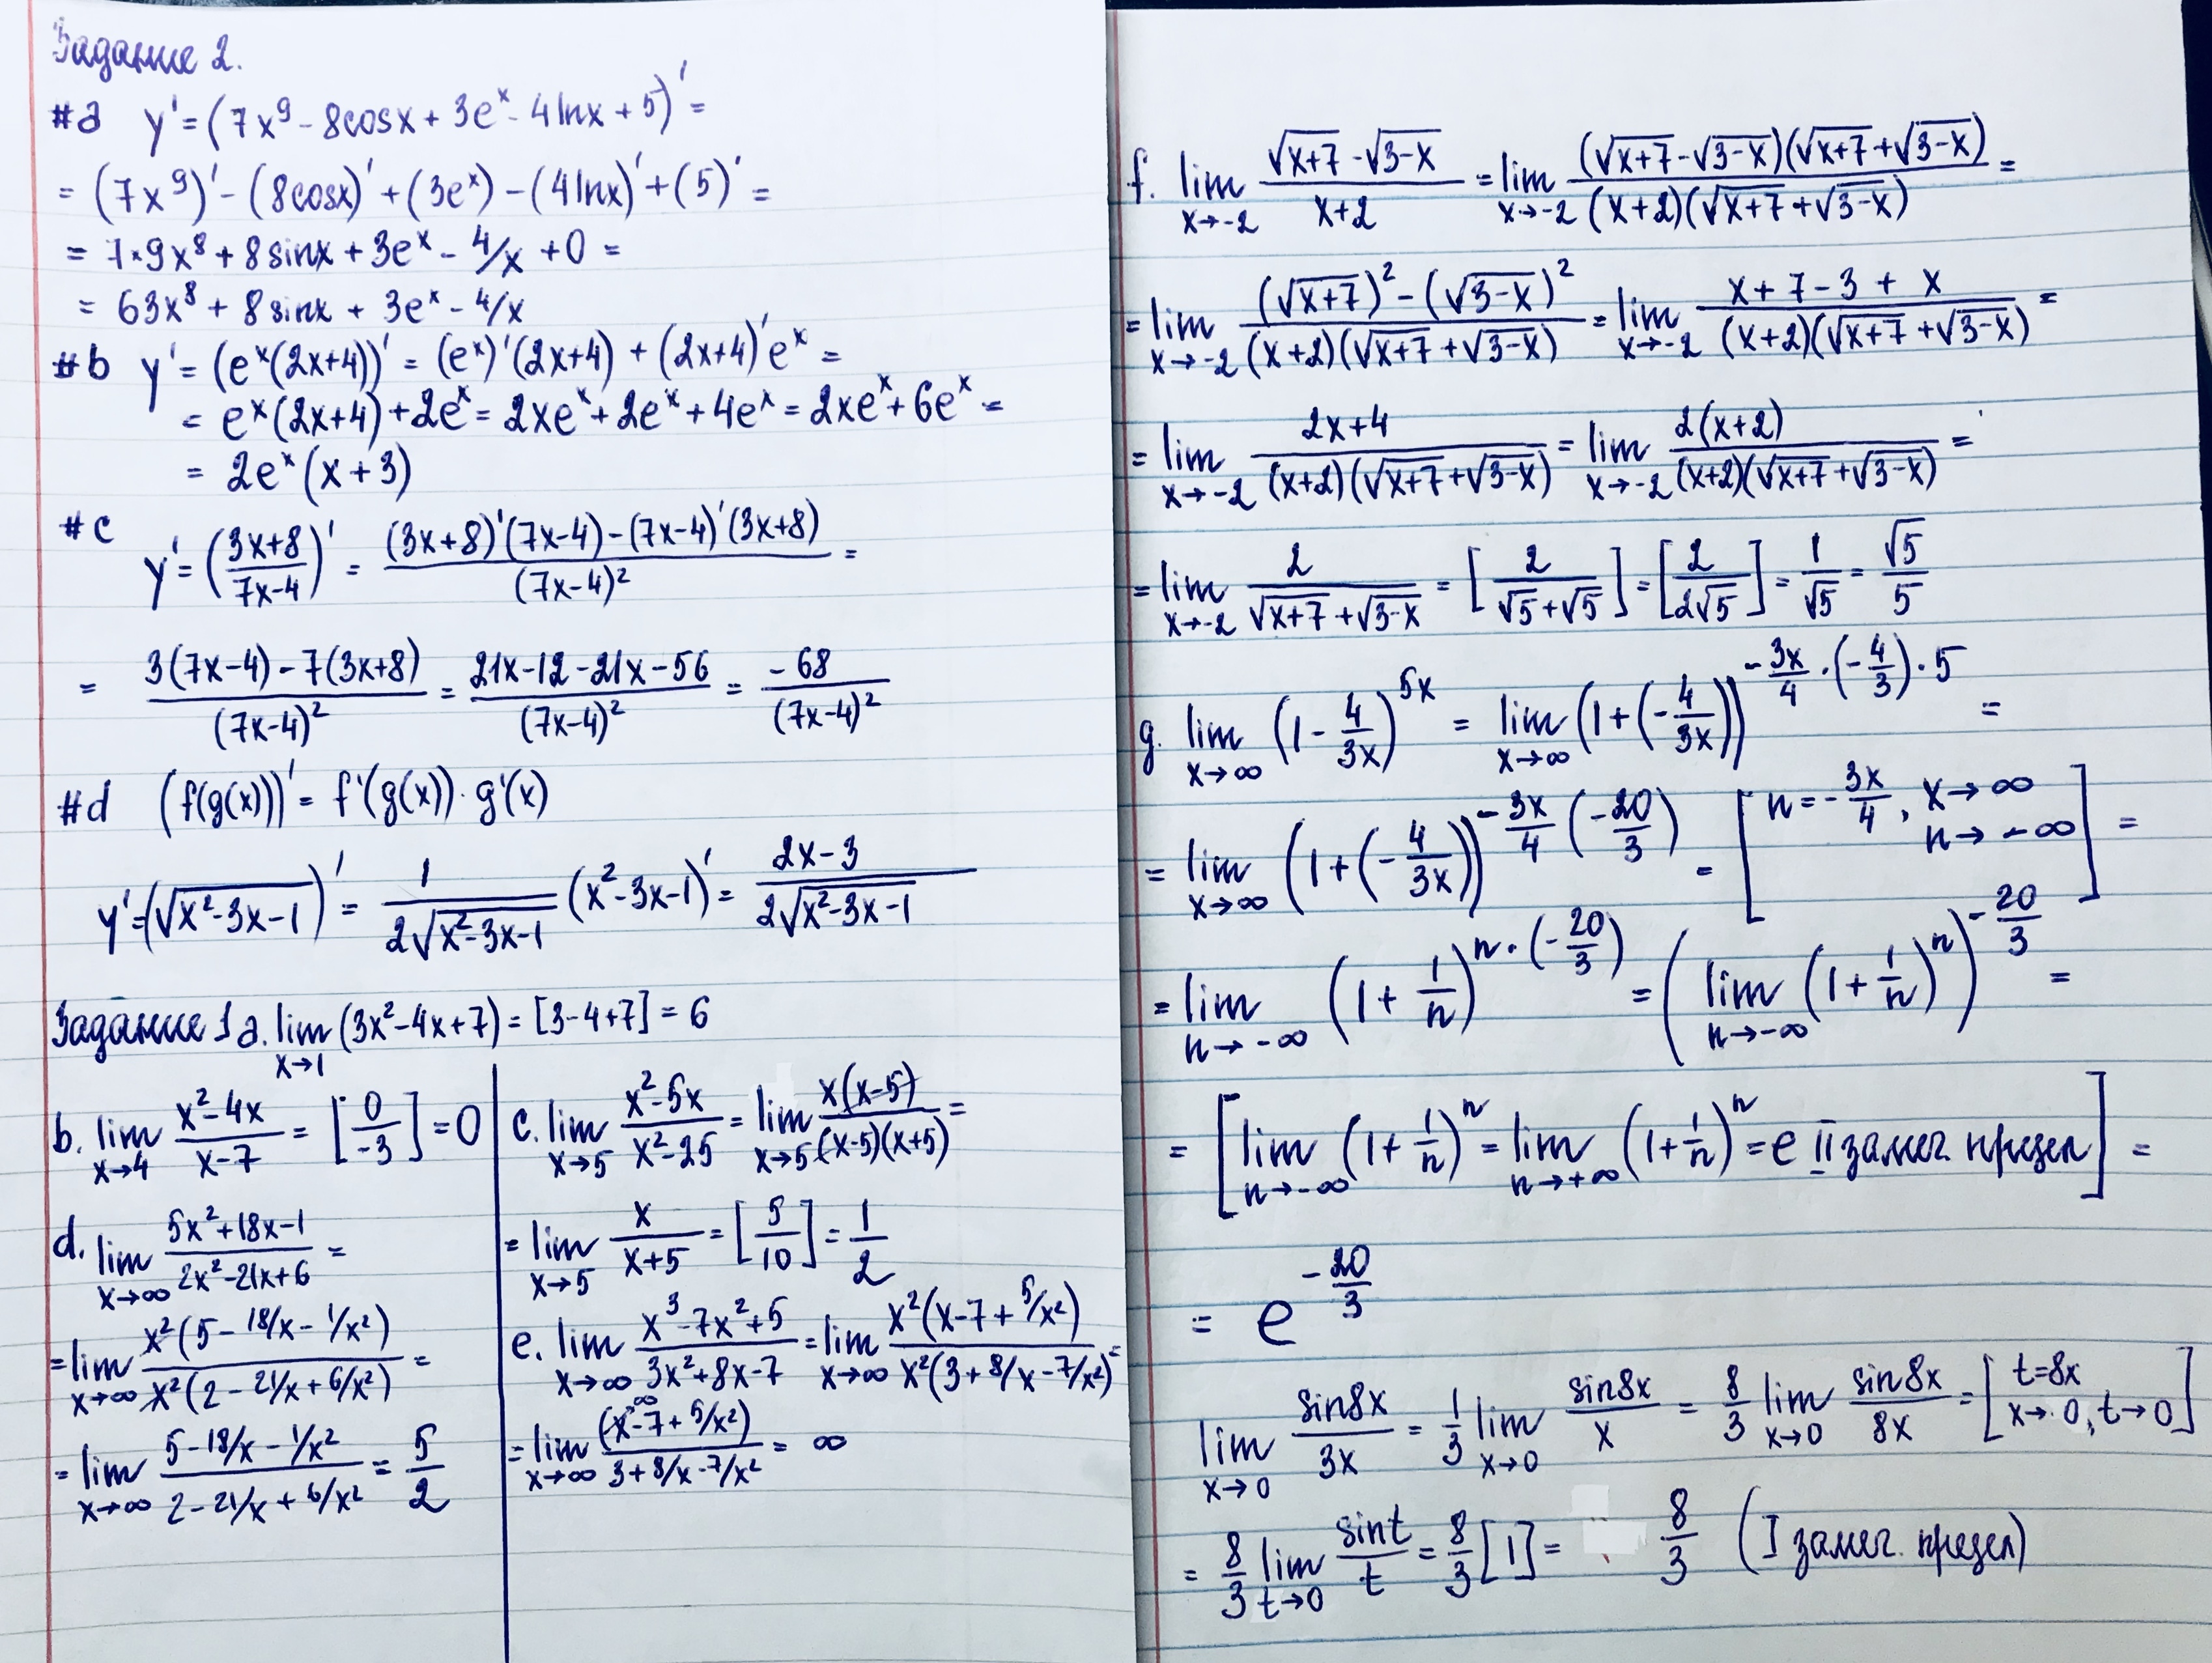 Задание 2.
#a y' = (7x⁹ - 8cosx + 3eˣ - 4lnx + 5)' =
= (7x⁹)' - (8cosx)' + (3eˣ) - (4lnx)' + (5)' =
= 7·9x⁸ + 8sinx + 3eˣ - 4/x + 0 =
= 63x⁸ + 8sinx + 3eˣ - 4/x
#b y' = (eˣ(2x+4))' = (eˣ)'(2x+4) + (2x+4)'eˣ =
= eˣ(2x+4) + 2eˣ = 2xeˣ + 2eˣ + 4eˣ = 2xeˣ + 6eˣ =
= 2eˣ(x+3)
#c y' = ((3x+8)/(7x-4))' = ((3x+8)'(7x-4) - (7x-4)'(3x+8))/(7x-4)² =
= (3(7x-4) - 7(3x+8))/(7x-4)² = (21x-12-21x-56)/(7x-4)² = -68/(7x-4)²
#d (f(g(x)))' = f'(g(x))·g'(x)
y' = (√(x²-3x-1))' = 1/(2√(x²-3x-1)) (x²-3x-1)' = (2x-3)/(2√(x²-3x-1))
Задание 1 a. lim x→1 (3x²-4x+7) = [3-4+7] = 6
b. lim x→4 (x²-4x)/(x-7) = [0/-3] = 0
c. lim x→5 (x²-5x)/(x²-25) = lim x→5 x(x-5)/((x-5)(x+5)) =
= lim x→5 x/(x+5) = [5/10] = 1/2
d. lim x→∞ (5x²+18x-1)/(2x²-21x+6) =
= lim x→∞ x²(5-18/x-1/x²)/(x²(2-21/x+6/x²)) =
= lim x→∞ (5-18/x-1/x²)/(2-21/x+6/x²) = 5/2
e. lim x→∞ (x³-7x²+5)/(3x²+8x-7) = lim x→∞ x²(x-7+5/x²)/(x²(3+8/x-7/x²)) =
= lim x→∞ (x^∞-7+5/x²)/(3+8/x-7/x²) = ∞
f. lim x→-2 (√(x+7)-√(3-x))/(x+2) = lim x→-2 (√(x+7)-√(3-x))(√(x+7)+√(3-x))/((x+2)(√(x+7)+√(3-x))) =
= lim x→-2 ((√(x+7))²-(√(3-x))²)/((x+2)(√(x+7)+√(3-x))) = lim x→-2 (x+7-3+x)/((x+2)(√(x+7)+√(3-x))) =
= lim x→-2 (2x+4)/((x+2)(√(x+7)+√(3-x))) = lim x→-2 2(x+2)/((x+2)(√(x+7)+√(3-x))) =
= lim x→-2 2/(√(x+7)+√(3-x)) = [2/(√5+√5)] = [2/(2√5)] = 1/√5 = √5/5
g. lim x→∞ (1-4/(3x))^(5x) = lim x→∞ (1+(-4/(3x)))^(-3x/4·(-4/3)·5) =
= lim x→∞ (1+(-4/(3x)))^(-3x/4 (-20/3)) = [n = -3x/4, x→∞ n→-∞] =
= lim n→-∞ (1+1/n)^(n·(-20/3)) = (lim n→-∞ (1+1/n)ⁿ)^(-20/3) =
= [lim n→-∞ (1+1/n)ⁿ = lim n→+∞ (1+1/n)ⁿ = e II замеч. предел] =
= e^(-20/3)
lim x→0 sin8x/(3x) = 1/3 lim x→0 sin8x/x = 8/3 lim x→0 sin8x/(8x) = [t=8x x→0, t→0]
= 8/3 lim t→0 sint/t = 8/3 [1] = 8/3 (I замеч. предел)